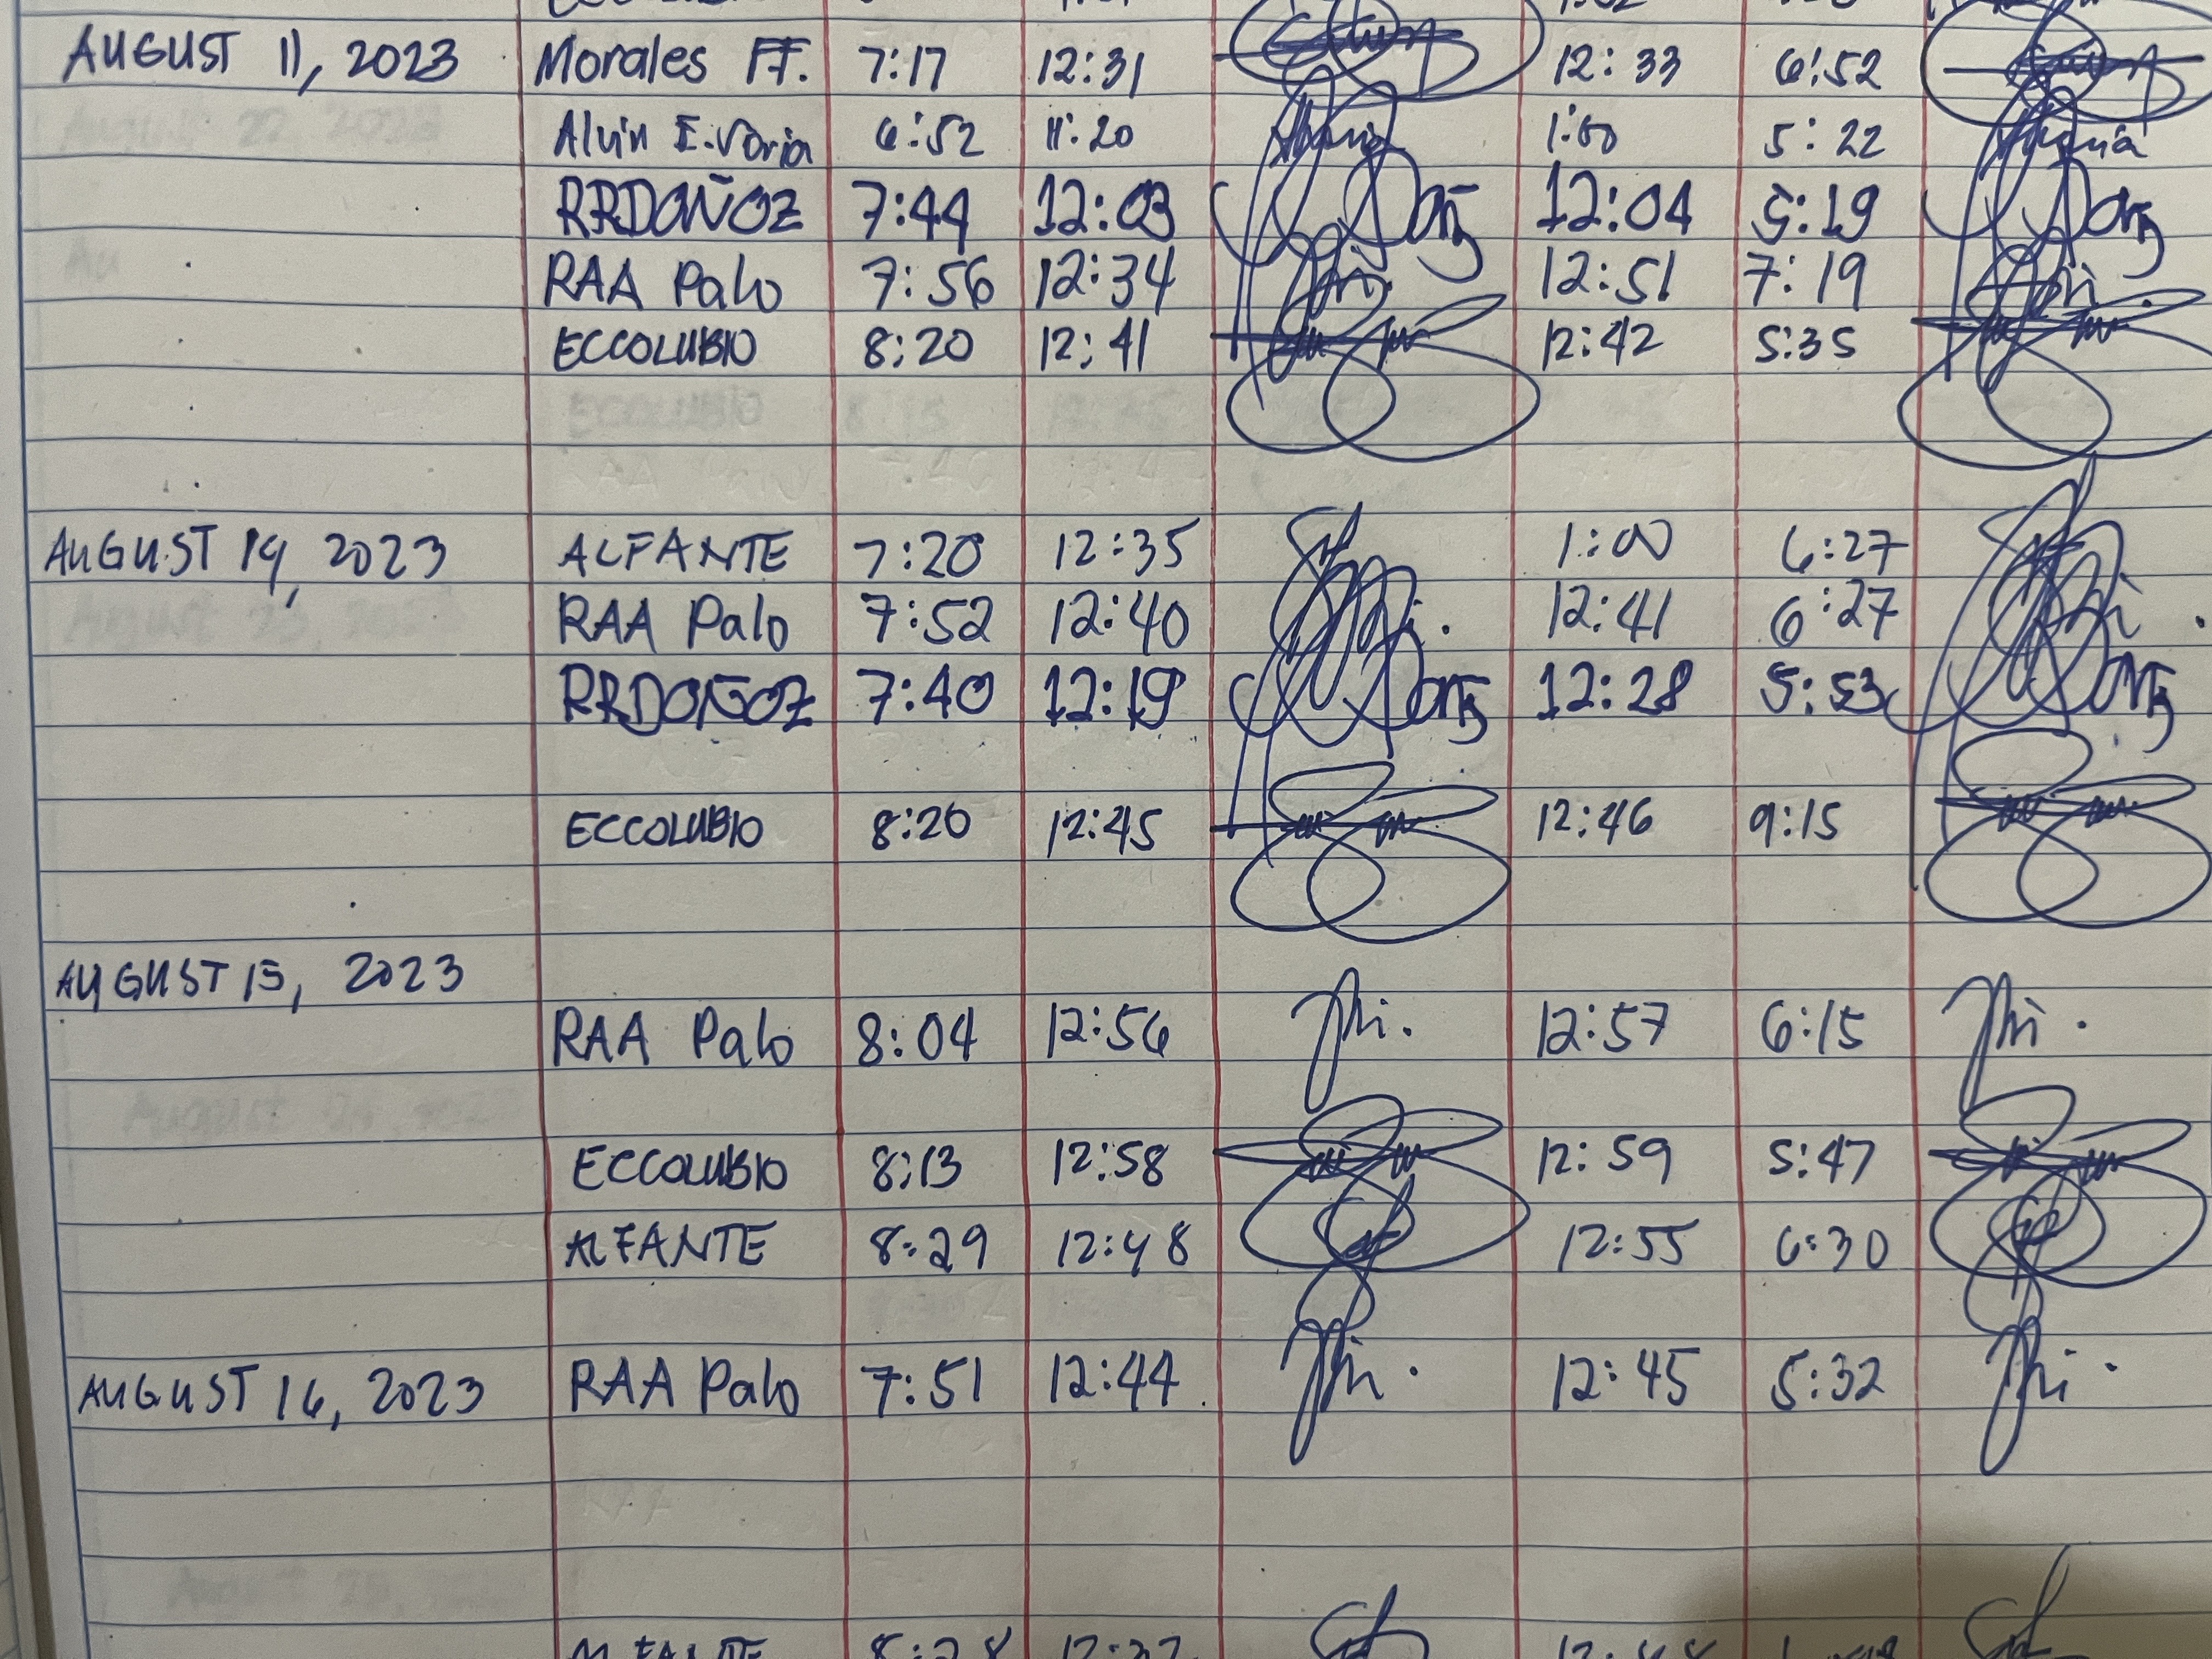 AUGUST 11, 2023 Morales FF. 7:17 12:31 12:33 6:52
Alvin E. Voria 6:52 11:20 1:00 5:22
RRDOÑOZ 7:44 12:03 12:04 5:19
RAA Palo 7:56 12:34 12:51 7:19
ECCOLUBIO 8:20 12:41 12:42 5:35
AUGUST 14, 2023 ALFANTE 7:20 12:35 1:00 6:27
RAA Palo 7:52 12:40 12:41 6:27
RRDOÑOZ 7:40 12:19 12:28 5:53
ECCOLUBIO 8:20 12:45 12:46 9:15
AUGUST 15, 2023
RAA Palo 8:04 12:56 12:57 6:15
ECCOLUBIO 8:13 12:58 12:59 5:47
ALFANTE 8:29 12:48 12:55 6:30
AUGUST 16, 2023 RAA Palo 7:51 12:44 12:45 5:32
ALFANTE